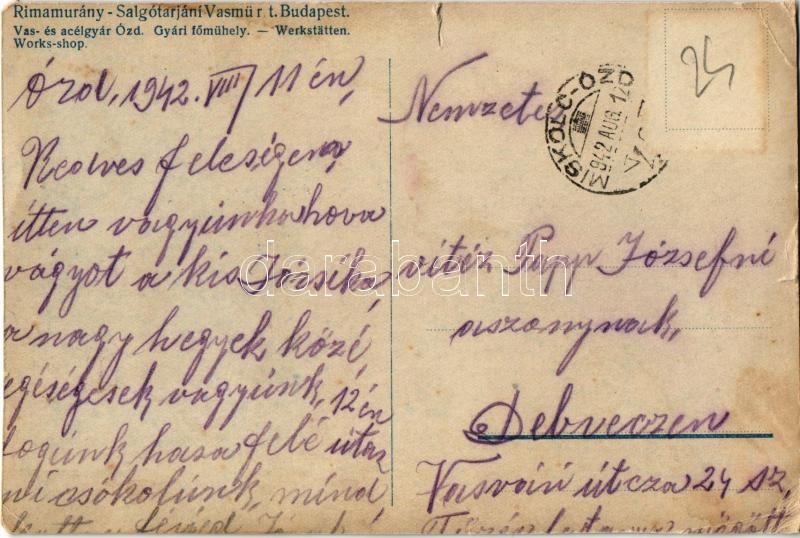 Rimamurány - Salgótarjáni Vasmü r. t. Budapest.
Vas- és acélgyár Ózd. Gyári főműhely. — Werkstätten.
Works-shop.
Ózd, 1942. VIII/11 én,
Kedves feleségem,
itten vagyunk ahova
vágyot a kis Józsika,
a nagy hegyek közé
egéségesek vagyunk, 12 én
fogunk hasa felé útaz
ni csókolunk, mind
férjed
24
MISKOLC-ÓZD
942 AUG. 12
Nemzetes
vitéz Papp Józsefné
aszonynak,
Debreczen
Vasvári útcza 24 sz,
darabanth